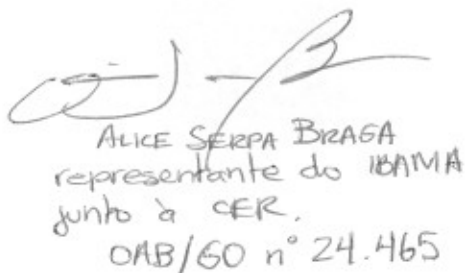 ALICE SERPA BRAGA
representante do IBAMA
junto à CER.
OAB/GO nº 24.465